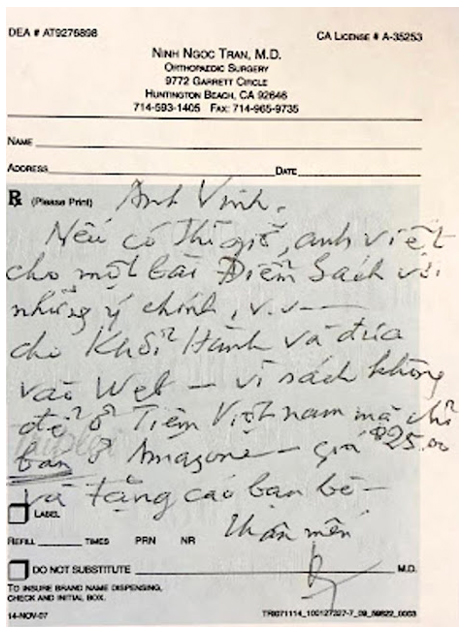 DEA # AT9276898
CA LICENSE # A-35253
NINH NGOC TRAN, M.D.
ORTHOPAEDIC SURGERY
9772 GARRETT CIRCLE
HUNTINGTON BEACH, CA 92646
714-593-1405 FAX: 714-965-9735
NAME
ADDRESS DATE
℞ (Please Print) Anh Vinh.
Nếu có thì giờ, anh viết
cho một bài Điểm Sách với
những ý chính, v.v —
cho Khởi Hành và đưa
vào Web – vì sách không
để ở Tiệm Việt nam mà chỉ
bán ở Amazone – giá $25.00
và tặng các bạn bè –
LABEL
thân mến
REFILL TIMES PRN NR
DO NOT SUBSTITUTE M.D.
TO INSURE BRAND NAME DISPENSING,
CHECK AND INITIAL BOX.
14-NOV-07